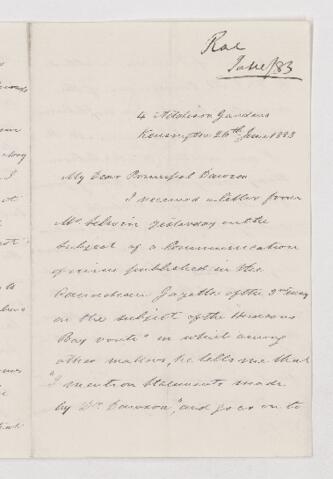 Rae
June/83
4 Addison Gardens
Kensington 26th June 1883
My Dear Principal Dawson
I received a letter from
Mr. Selwin yesterday on the
subject of a Communication
of mine published in the
Canadian Gazette of the 3rd May
on the subject of the Hudsons
Bay route" in which among
other matters, he tells me that
"I mention statements made
by Dr. Dawson," and goes on to